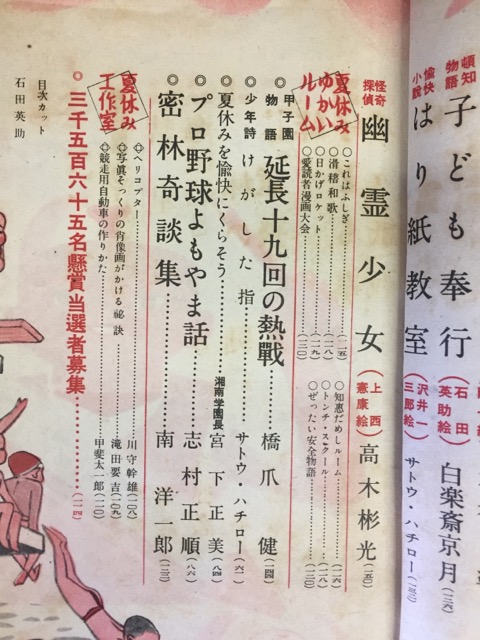 頓知物語 子ども奉行(石田英助絵)白楽斎京月
愉快小説 はり紙教室(沢井一三郎絵)サトウ・ハチロー
怪奇探偵 幽霊少女(上西憲康絵)高木彬光
夏休みゆかいルーム
○これはふしぎ
○滑稽和歌
○日かげロケット
○愛読者漫画大会
○知恵だめしルーム
○トンチ・スクール
○ぜったい安全物語
◎甲子園物語 延長十九回の熱戦 橋爪健
◎少年詩 けがした指 サトウ・ハチロー
◎夏休みを愉快にくらそう 湘南学園長 宮下正美(八四)
◎プロ野球よもやま話 志村正順(八六)
◎密林奇談集 南洋一郎
夏休み工作室
◎ヘリコプター 川守幹雄
◎写真そっくりの肖像画がかける秘訣 滝田要吉
◎競走用自動車の作りかた 甲斐太一郎
◎三千五百六十五名懸賞当選者募集
目次カット
石田英助